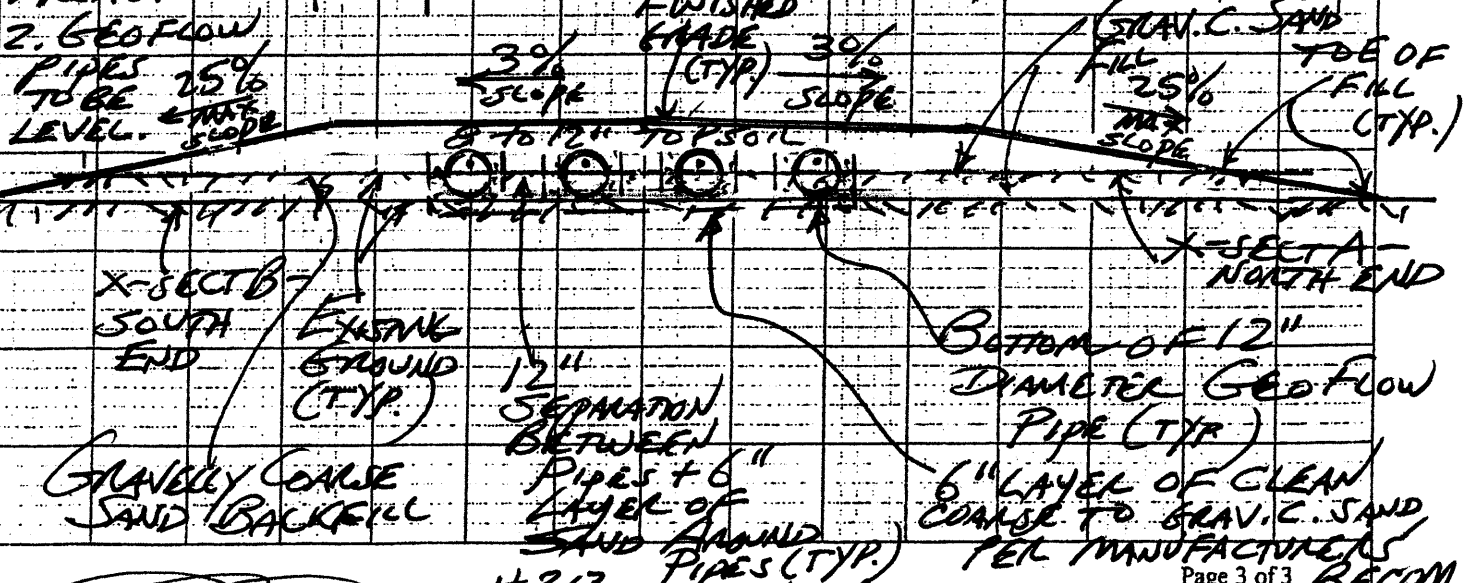 2. GEOFLOW
PIPES
TO BE
LEVEL.
25%
MAX
SLOPE
3%
SLOPE
FINISHED
GRADE
(TYP.)
3%
SLOPE
GRAV. C. SAND
FILL
25%
MAX
SLOPE
TOE OF
FILL
(TYP.)
8 TO 12" TOPSOIL
X-SECT B-
SOUTH
END
EXISTING
GROUND
(TYP.)
GRAVELLY COARSE
SAND BACKFILL
12"
SEPARATION
BETWEEN
PIPES + 6"
LAYER OF
SAND AROUND
PIPES (TYP.)
X-SECT A-
NORTH END
BOTTOM OF 12"
DIAMETER GEOFLOW
PIPE (TYP)
6" LAYER OF CLEAN
COARSE TO GRAV. C. SAND
PER MANUFACTURERS'
Page 3 of 3